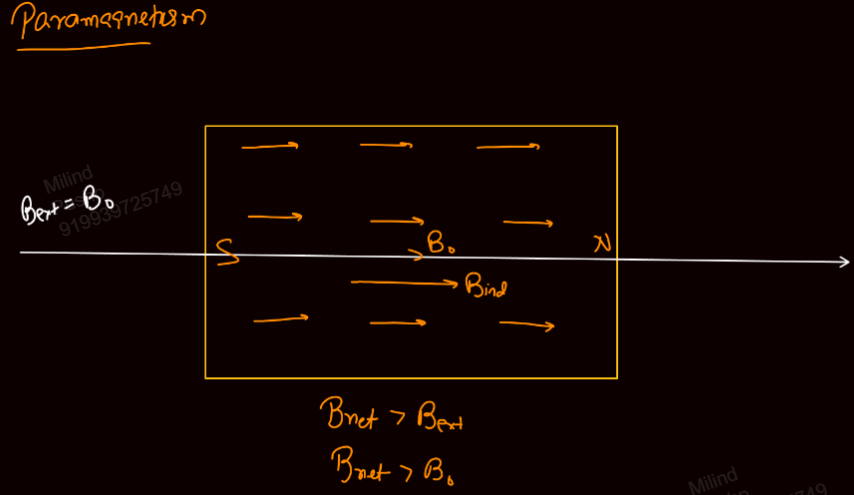 Paramagnetism
Milind
919939725749
Bext = B₀
S
B₀
N
Bind
Bnet > Bext
Bnet > B₀
Milind